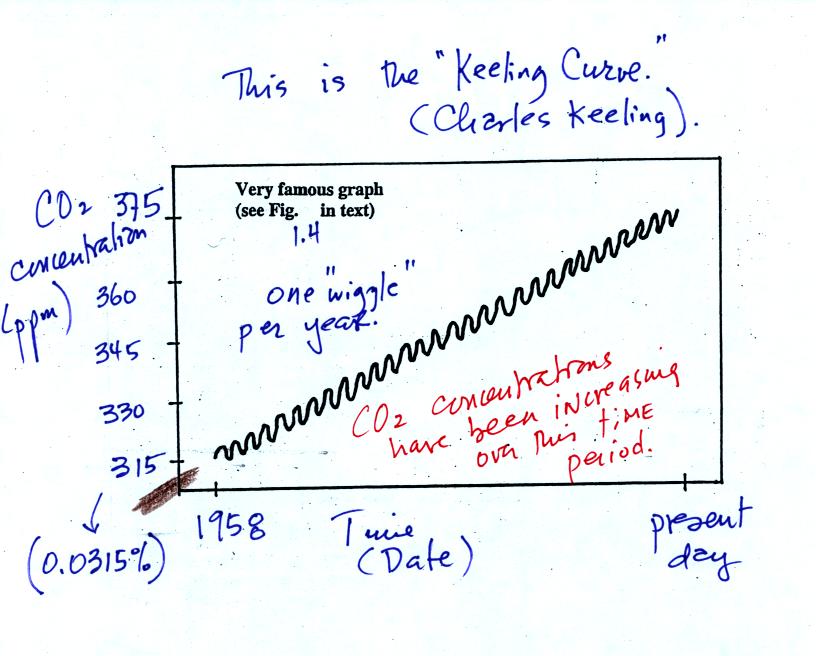 This is the "Keeling Curve."
(Charles Keeling).
Very famous graph
(see Fig. in text)
1.4
CO2 375
concentration
(ppm)
360
345
330
315
(0.0315%)
one "wiggle"
per year.
CO2 concentrations
have been increasing
over this time
period.
1958
Time
(Date)
present
day